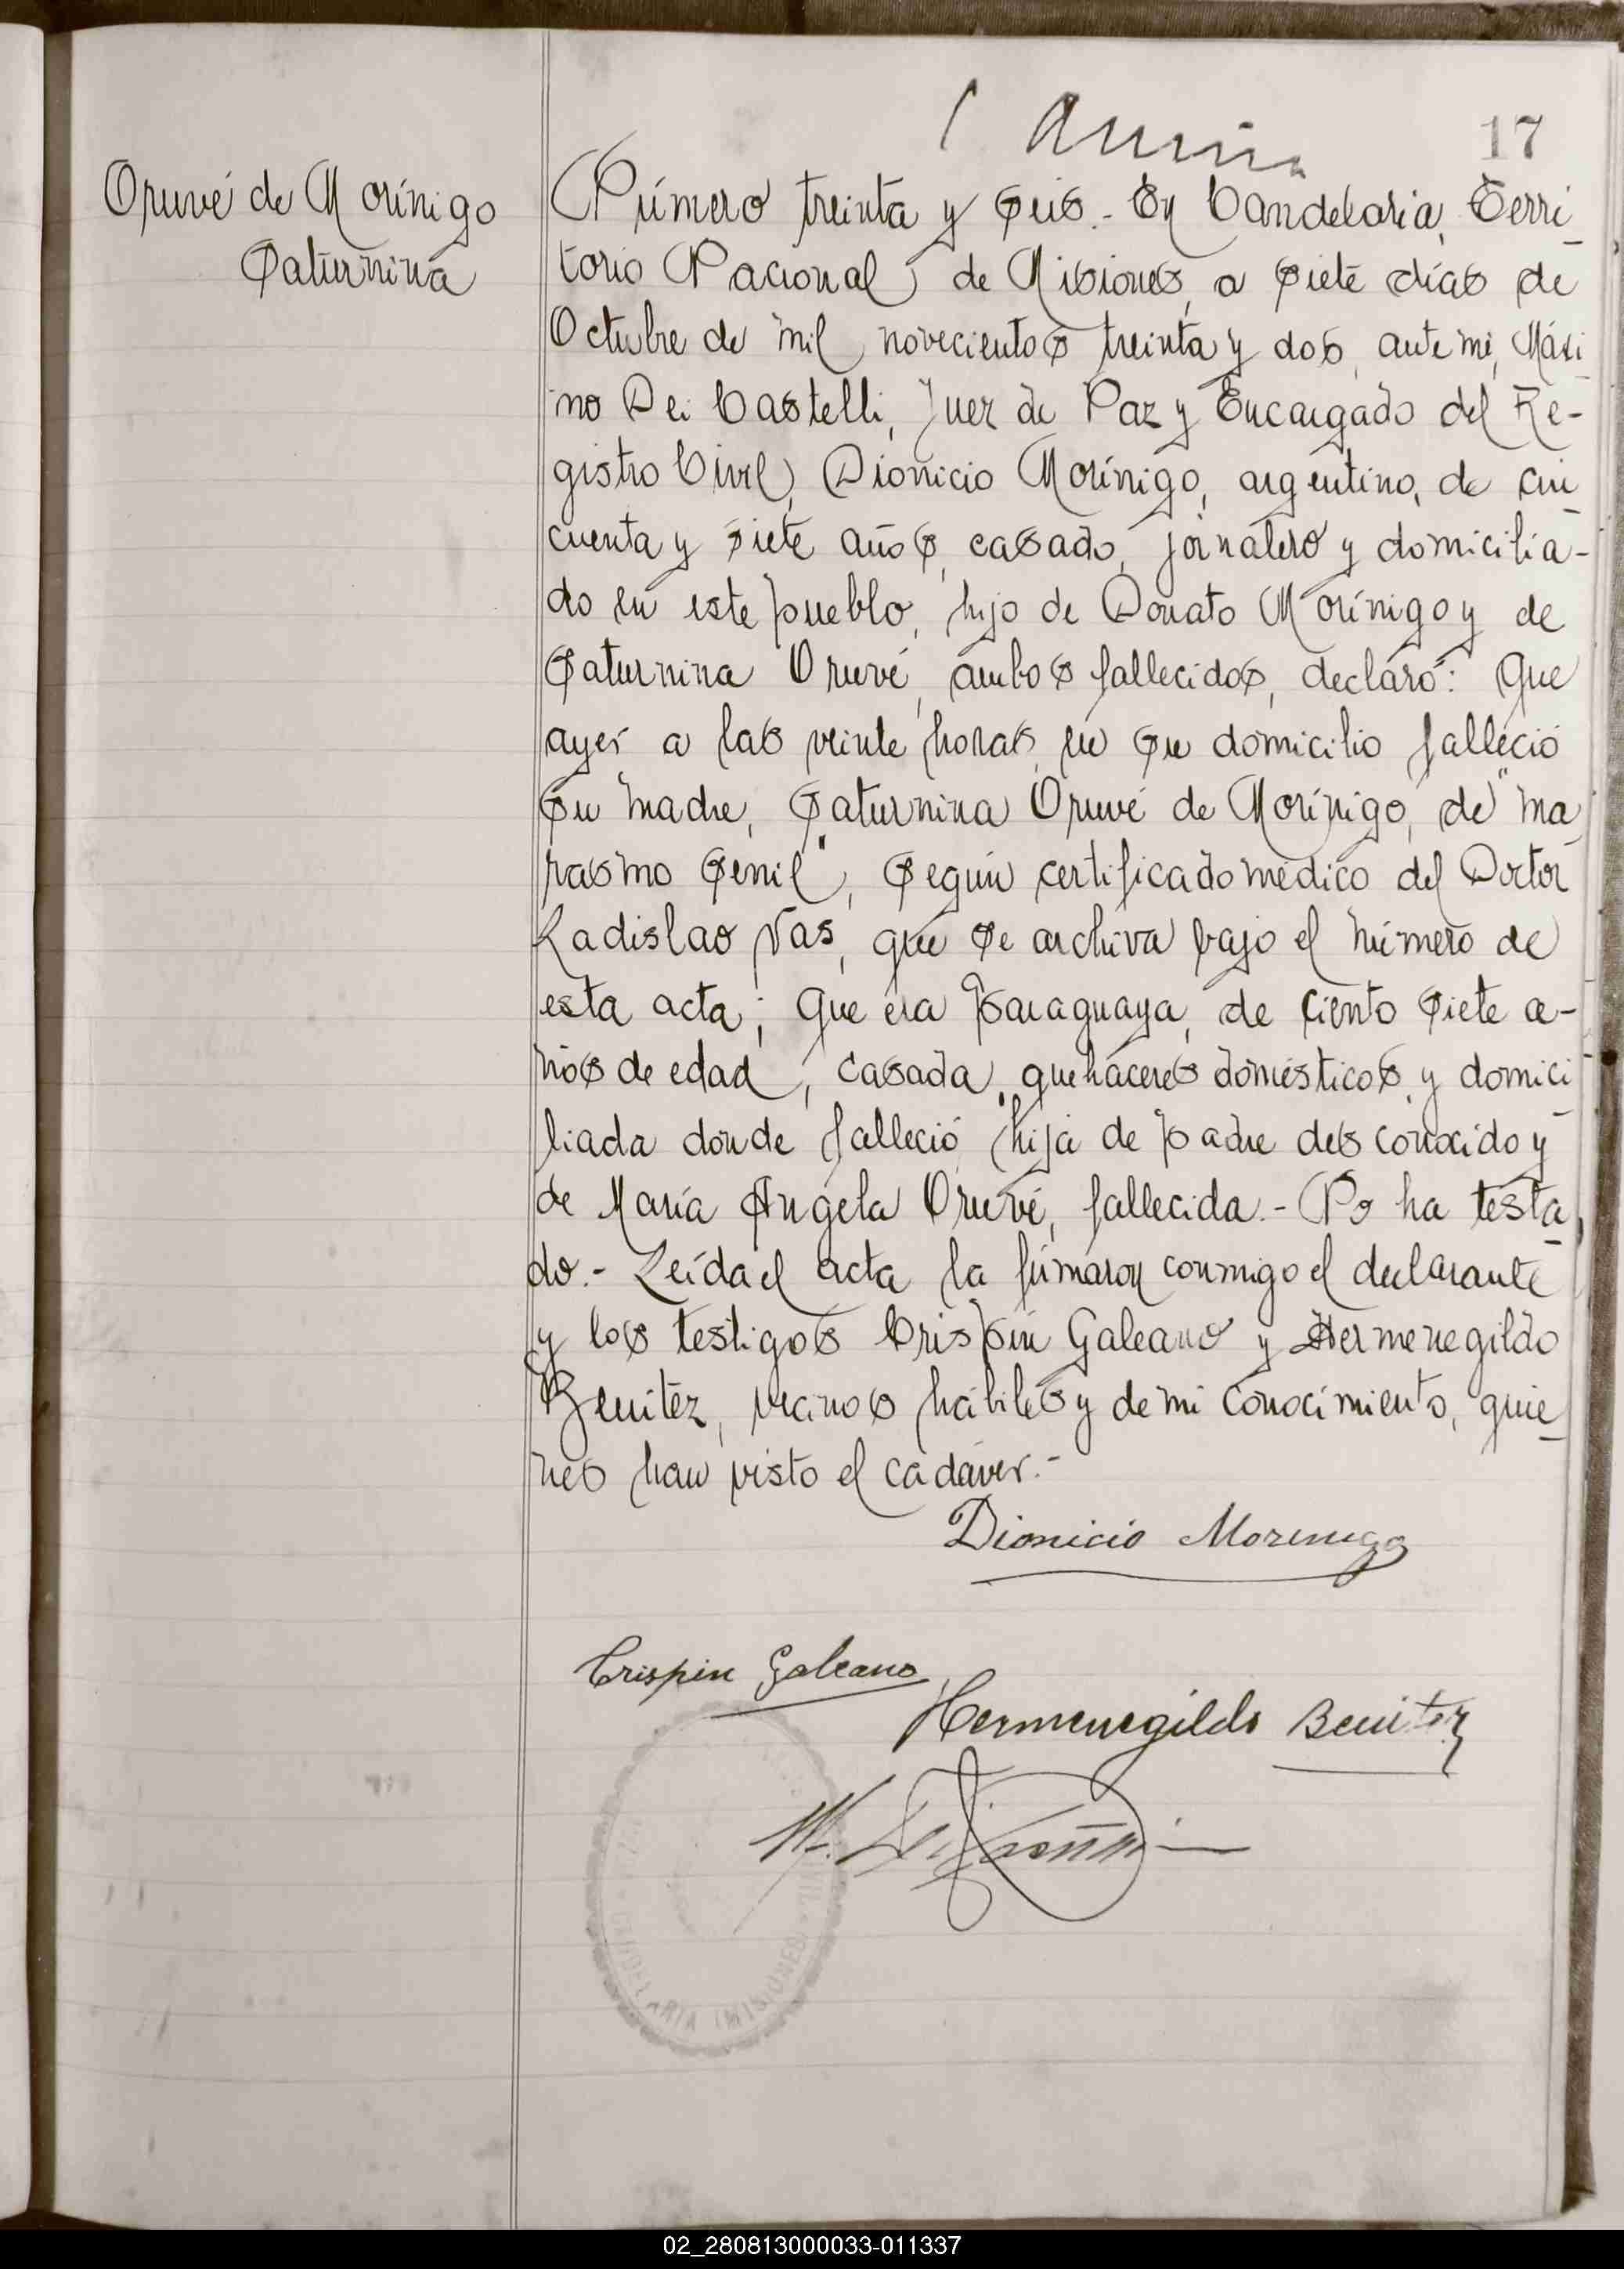 17
Oruvé de Morínigo
Saturnina
Número treinta y seis.- En Candelaria, Terri
torio Nacional de Misiones, a siete días de
Octubre de mil novecientos treinta y dos, ante mi, Máxi
mo Dei Castelli, Juez de Paz y Encargado del Re-
gistro Civil, Dionicio Morínigo, argentino, de cin
cuenta y siete años, casado, jornalero y domicilia-
do en este pueblo, hijo de Donato Morínigo y de
Saturnina Oruvé, ambos fallecidos, declaró: Que
ayer a las veinte horas, en su domicilio falleció
su madre, Saturnina Oruvé de Morínigo, de "ma
rasmo senil", según certificado médico del Doctor
Ladislao Vas, que se archiva bajo el número de
esta acta; Que era paraguaya, de ciento siete a-
ños de edad, casada, quehaceres domésticos y domici
liada donde falleció, hija de padre desconocido y
de María Angela Oruvé, fallecida.- No ha testa
do.- Leída el acta la firmaron conmigo el declarante
y los testigos Crispín Galeano y Hermenegildo
Benítez, vecinos hábiles y de mi conocimiento, quie
nes han visto el cadáver.-
Dionicio Morinigo
Crispin Galeano
Hermenegildo Benitez
M. Dei Castelli
CANDELARIA (MISIONES)
02_280813000033-011337